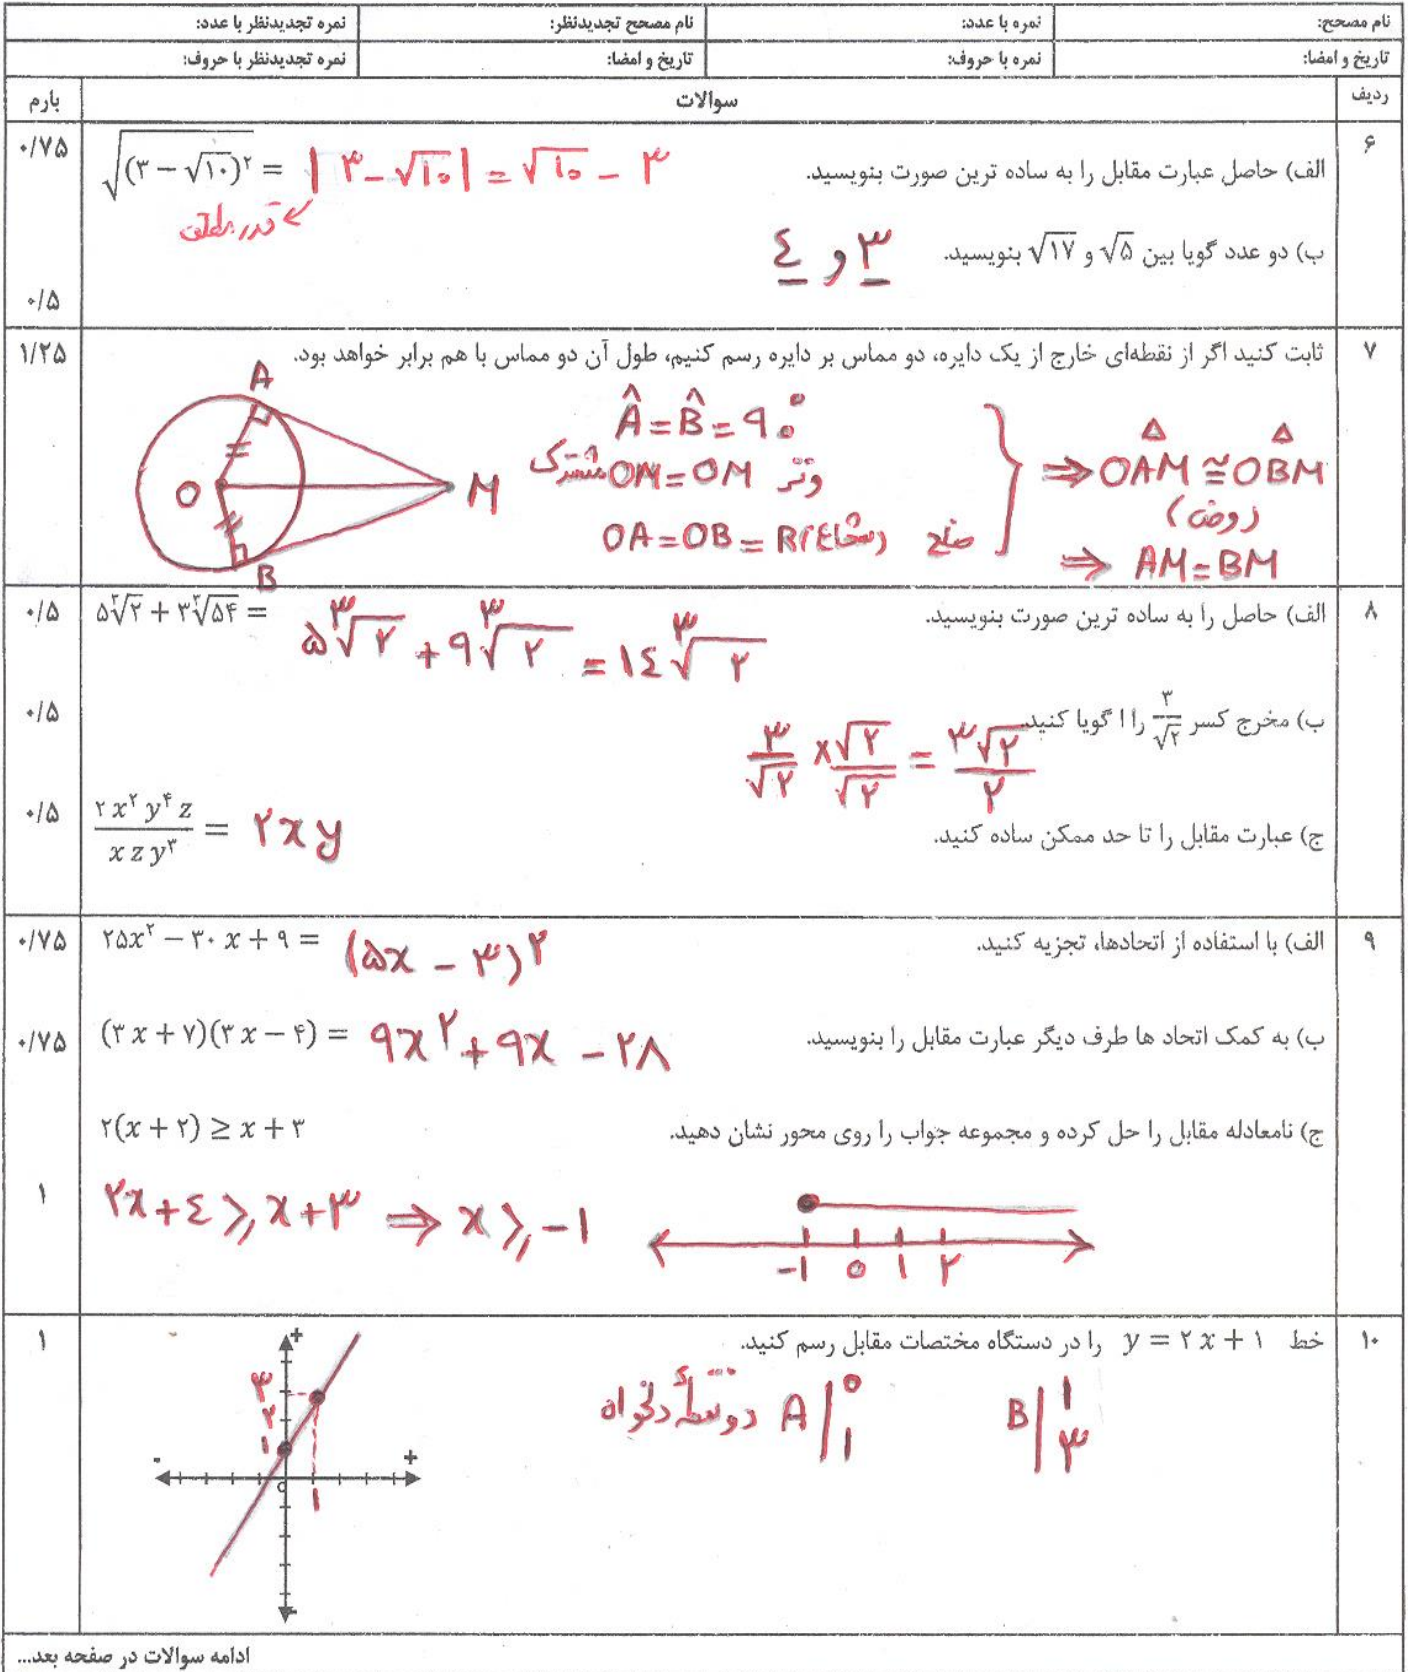 نام مصحح: نمره با عدد: نام مصحح تجدیدنظر: نمره تجدیدنظر با عدد:
تاریخ و امضا: نمره با حروف: تاریخ و امضا: نمره تجدیدنظر با حروف:
ردیف سوالات بارم
۶ الف) حاصل عبارت مقابل را به ساده ترین صورت بنویسید. √((۳ − √۱۰)^۲) = |۳ − √۱۰| = √۱۰ − ۳ ۰/۷۵
قدر مطلق
ب) دو عدد گویا بین √۵ و √۱۷ بنویسید. ۳ و ٤
۰/۵
۷ ثابت کنید اگر از نقطه‌ای خارج از یک دایره، دو مماس بر دایره رسم کنیم، طول آن دو مماس با هم برابر خواهد بود. ۱/۲۵
A
O
M
B
Â = B̂ = ۹۰°
وتر OM = OM مشترک
ضلع OA = OB = R (شعاع)
⇒ OAM ≅ OBM
(وض)
⇒ AM = BM
۸ الف) حاصل را به ساده ترین صورت بنویسید. ۵∛۲ + ۳∛۵۴ = ۵∛۲ + ۹∛۲ = ۱٤∛۲ ۰/۵
ب) مخرج کسر ۳/√۲ را ا گویا کنید. ۳/√۲ × √۲/√۲ = ۳√۲/۲ ۰/۵
ج) عبارت مقابل را تا حد ممکن ساده کنید. (۲x^۲ y^۴ z)/(x z y^۳) = ۲xy ۰/۵
۹ الف) با استفاده از اتحادها، تجزیه کنید. ۲۵x^۲ − ۳۰ x + ۹ = (۵x − ۳)^۲ ۰/۷۵
ب) به کمک اتحاد ها طرف دیگر عبارت مقابل را بنویسید. (۳ x + ۷)(۳ x − ۴) = ۹x^۲ + ۹x − ۲۸ ۰/۷۵
ج) نامعادله مقابل را حل کرده و مجموعه جواب را روی محور نشان دهید. ۲(x + ۲) ≥ x + ۳
۲x + ٤ ≥ x + ۳ ⇒ x ≥ −۱ ۱
−۱ ۰ ۱ ۲
۱۰ خط y = ۲ x + ۱ را در دستگاه مختصات مقابل رسم کنید. ۱
دو نقطهٔ دلخواه A|۰ ۱ B|۱ ۳
+
۳
۲
۱
- +
۰
۱
-
ادامه سوالات در صفحه بعد...